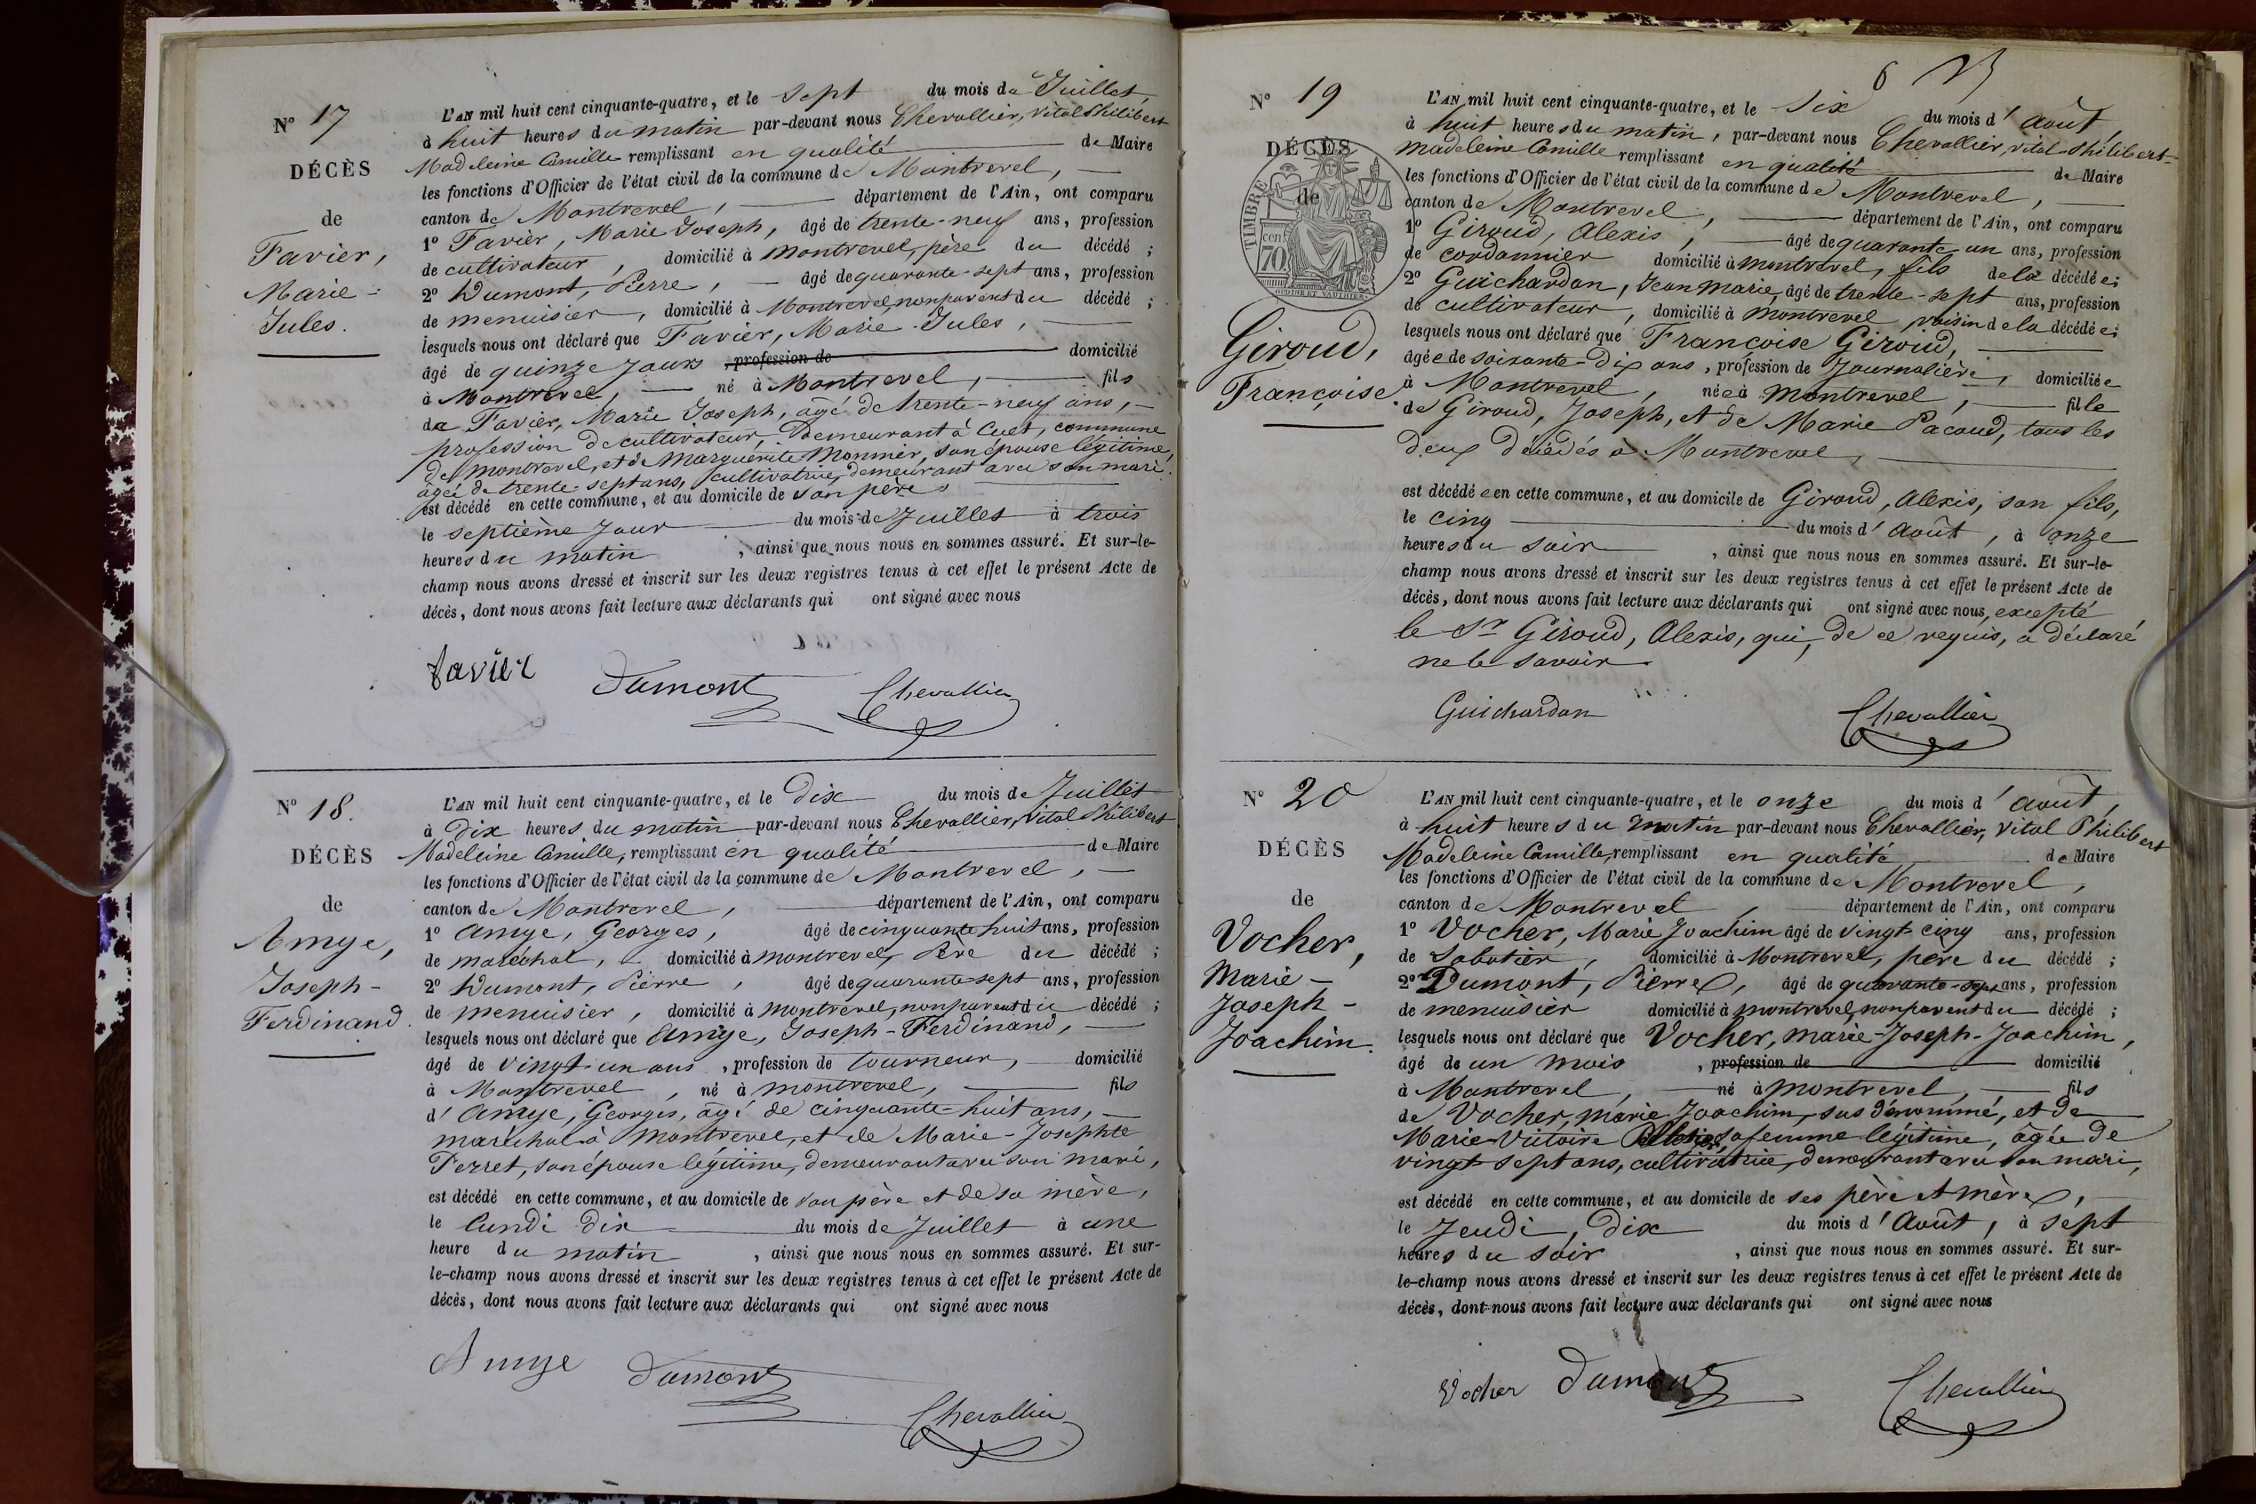 N° 17
DÉCÈS
de
Favier,
Marie-
Jules.
L'AN mil huit cent cinquante-quatre, et le sept du mois de Juillet,
à huit heures du matin par-devant nous Chevallier, Vital Philibert
Madeleine Camille remplissant en qualité de Maire
les fonctions d'Officier de l'état civil de la commune de Montrevel,
canton de Montrevel, département de l'Ain, ont comparu
1° Favier, Marie Joseph, âgé de trente-neuf ans, profession
de cultivateur, domicilié à Montrevel, père du décédé;
2° Dumont, Pierre, âgé de quarante-sept ans, profession
de menuisier, domicilié à Montrevel, non parent du décédé;
lesquels nous ont déclaré que Favier, Marie-Jules,
âgé de quinze jours profession de domicilié
à Montrevel, né à Montrevel, fils
de Favier, Marie Joseph, âgé de trente-neuf ans,
profession de cultivateur, demeurant à Cuet, commune
de Montrevel, et de Marguerite Monnier, son épouse légitime,
âgée de trente-sept ans, cultivatrice, demeurant avec son mari.
est décédé en cette commune, et au domicile de son père
le septième jour du mois de Juillet à trois
heures du matin, ainsi que nous nous en sommes assuré. Et sur-le-
champ nous avons dressé et inscrit sur les deux registres tenus à cet effet le présent Acte de
décès, dont nous avons fait lecture aux déclarants qui ont signé avec nous
favier Dumont Chevallier
N° 18.
DÉCÈS
de
Amye,
Joseph-
Ferdinand.
L'AN mil huit cent cinquante-quatre, et le dix du mois de Juillet
à dix heures du matin par-devant nous Chevallier, Vital Philibert
Madeleine Camille, remplissant en qualité de Maire
les fonctions d'Officier de l'état civil de la commune de Montrevel,
canton de Montrevel, département de l'Ain, ont comparu
1° Amye, Georges, âgé de cinquante huit ans, profession
de maréchal, domicilié à Montrevel, Père du décédé;
2° Dumont, Pierre, âgé de quarante-sept ans, profession
de menuisier, domicilié à Montrevel, non parent du décédé;
lesquels nous ont déclaré que Amye, Joseph-Ferdinand,
âgé de vingt-un ans, profession de tourneur, domicilié
à Montrevel, né à Montrevel, fils
d'Amye, Georges, âgé de cinquante-huit ans,
maréchal à Montrevel, et de Marie-Josephte
Ferret, son épouse légitime, demeurant avec son mari,
est décédé en cette commune, et au domicile de son père et de sa mère,
le lundi dix du mois de Juillet à une
heure du matin, ainsi que nous nous en sommes assuré. Et sur-
le-champ nous avons dressé et inscrit sur les deux registres tenus à cet effet le présent Acte de
décès, dont nous avons fait lecture aux déclarants qui ont signé avec nous
Amye Dumont
Chevallier
6
N° 19
DÉCÈS
de
TIMBRE
70 cent
Giroud,
Françoise
L'AN mil huit cent cinquante-quatre, et le six du mois d'août,
à huit heures du matin, par-devant nous Chevallier, Vital-Philibert-
Madeleine Camille remplissant en qualité de Maire
les fonctions d'Officier de l'état civil de la commune de Montrevel,
canton de Montrevel, département de l'Ain, ont comparu
1° Giroud, Alexis, âgé de quarante-un ans, profession
de cordonnier domicilié à Montrevel, fils de la décédée;
2° Guichardan, Jean Marie, âgé de trente-sept ans, profession
de cultivateur, domicilié à Montrevel voisin de la décédée;
lesquels nous ont déclaré que Françoise Giroud,
âgée de soixante-dix ans, profession de Journalière, domiciliée
à Montrevel, née à Montrevel, fille
de Giroud, Joseph, et de Marie Pacoud, tous les
deux décédés à Montrevel,
est décédée en cette commune, et au domicile de Giroud, Alexis, son fils,
le cinq du mois d'Août, à onze
heures du soir, ainsi que nous nous en sommes assuré. Et sur-le-
champ nous avons dressé et inscrit sur les deux registres tenus à cet effet le présent Acte de
décès, dont nous avons fait lecture aux déclarants qui ont signé avec nous, excepté
le Sr Giroud, Alexis, qui, de ce requis, a déclaré
ne le savoir.
Guichardan Chevallier
N° 20
DÉCÈS
de
Vocher,
Marie-
Joseph-
Joachim.
L'AN mil huit cent cinquante-quatre, et le onze du mois d'Août,
à huit heures du matin par-devant nous Chevallier, Vital Philibert
Madeleine Camille, remplissant en qualité de Maire
les fonctions d'Officier de l'état civil de la commune de Montrevel,
canton de Montrevel, département de l'Ain, ont comparu
1° Vocher, Marie Joachim âgé de vingt cinq ans, profession
de Sabotier, domicilié à Montrevel, père du décédé;
2° Dumont, Pierre, âgé de quarante-sept ans, profession
de menuisier domicilié à Montrevel, non parent du décédé;
lesquels nous ont déclaré que Vocher, Marie-Joseph-Joachim,
âgé de un mois, profession de domicilié
à Montrevel, né à Montrevel, fils
de Vocher, Marie Joachim, sus dénommé, et de
Marie Victoire sa femme légitime, âgée de
vingt sept ans, cultivatrice, demeurant avec son mari,
est décédé en cette commune, et au domicile de ses père et mère,
le Jeudi, dix du mois d'Août, à sept
heures du soir, ainsi que nous nous en sommes assuré. Et sur-
le-champ nous avons dressé et inscrit sur les deux registres tenus à cet effet le présent Acte de
décès, dont nous avons fait lecture aux déclarants qui ont signé avec nous
Vocher Dumont Chevallier